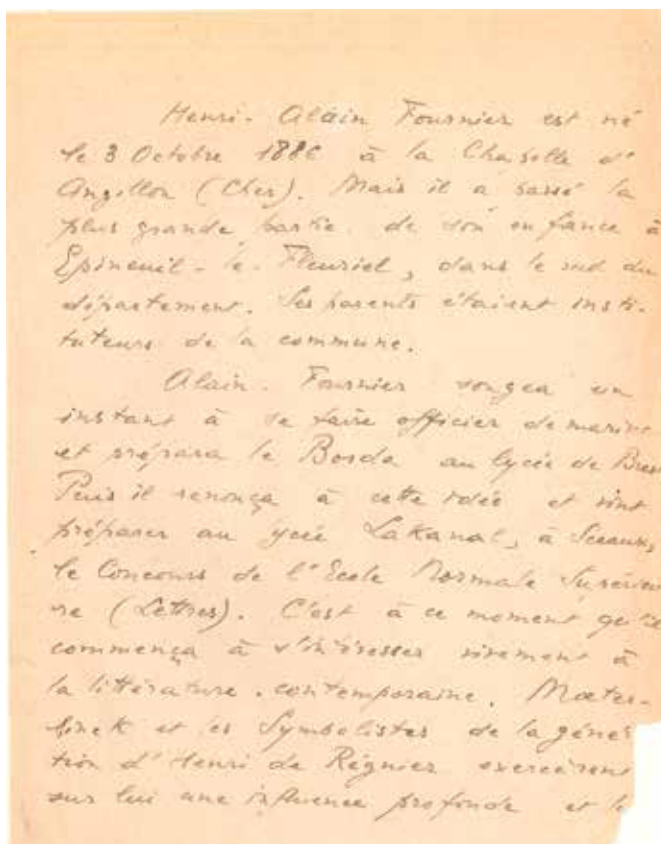 Henri-Alain Fournier est né
le 3 Octobre 1886 à la Chapelle d'
Angillon (Cher). Mais il a passé la
plus grande partie de son enfance à
Epineuil-le-Fleuriel, dans le sud du
département. Ses parents étaient insti-
tuteurs de la commune.
Alain-Fournier songea un
instant à se faire officier de marine
et prépara le Borda au lycée de Brest
Puis il renonça à cette idée et vint
préparer au lycée Lakanal, à Sceaux,
le Concours de l'Ecole Normale Supérieu
re (Lettres). C'est à ce moment qu'il
commença à s'intéresser vivement à
la littérature contemporaine. Mæter-
linck et les Symbolistes de la géné
tion d'Henri de Régnier exercèrent
sur lui une influence profonde et